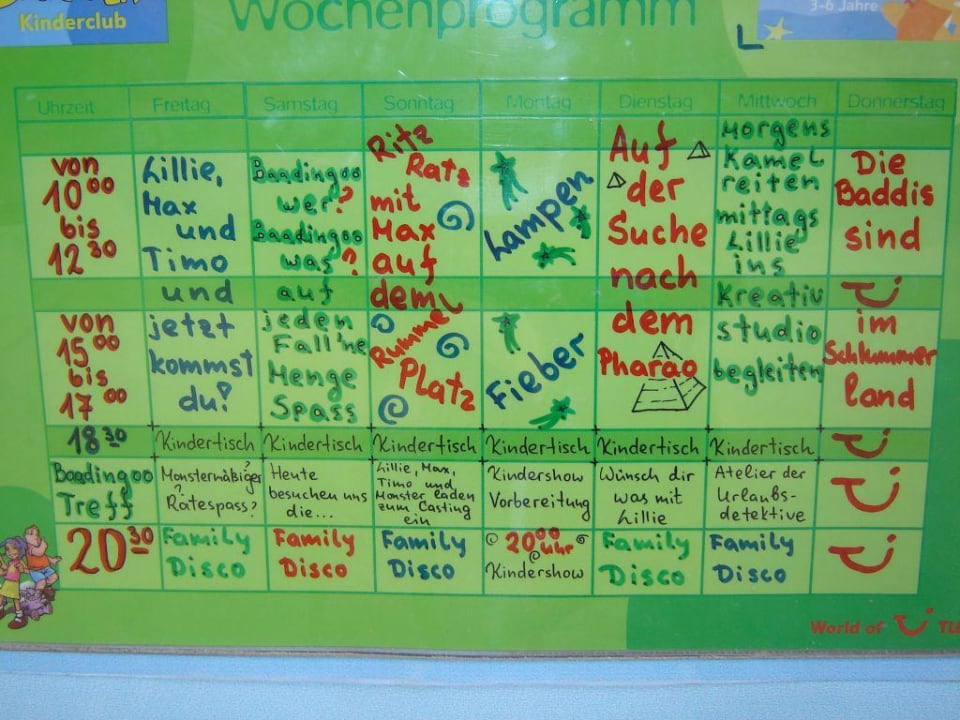 Kinderclub
Wochenprogramm
3-6 Jahre
Uhrzeit Freitag Samstag Sonntag Montag Dienstag Mittwoch Donnerstag
von
10 00
bis
12 30
von
15 00
bis
17 00
Lillie,
Max
und
Timo
und
jetzt
kommst
du!
Baadingoo
wer?
Baadingoo
was?
auf
jeden
Fall'ne
Menge
Spass
Ritz
Ratz
mit
Max
auf
dem
Rummel
Platz
Lampen
Fieber
Auf
der
Suche
nach
dem
Pharao
Morgens
Kamel
reiten
mittags
Lillie
ins
Kreativ
studio
begleiten
Die
Baddis
sind
im
Schlummer
land
18 30 Kindertisch Kindertisch Kindertisch Kindertisch Kindertisch Kindertisch
Baadingoo
Treff
Monstermäßiger
Rätespass?
Heute
besuchen uns
die...
Lillie, Max,
Timo und
Monster laden
zum Casting
ein
Kindershow
Vorbereitung
Wünsch dir
was mit
Lillie
Atelier der
Urlaubs-
detektive
20 30
Family
Disco
Family
Disco
Family
Disco
20 00 Uhr
Kindershow
Family
Disco
Family
Disco
World of TUI